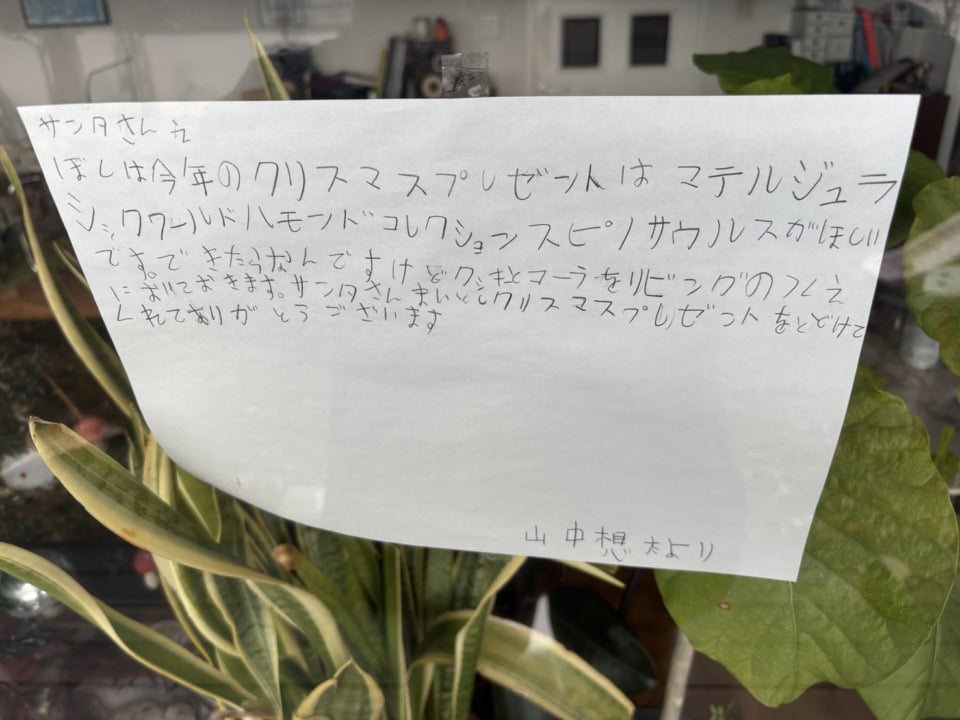 サンタさんえ
ぼしは今年のクリスマスプレゼントは マテルジュラ
シックワールドハモンドコレクションスピノサウルスがほしい
です。できたらなんですけどクッキとコーラをリビングのつくえ
においておきます。サンタさんまいとしクリスマスプレゼントをとどけて
くれてありがとうございます
山中想太より